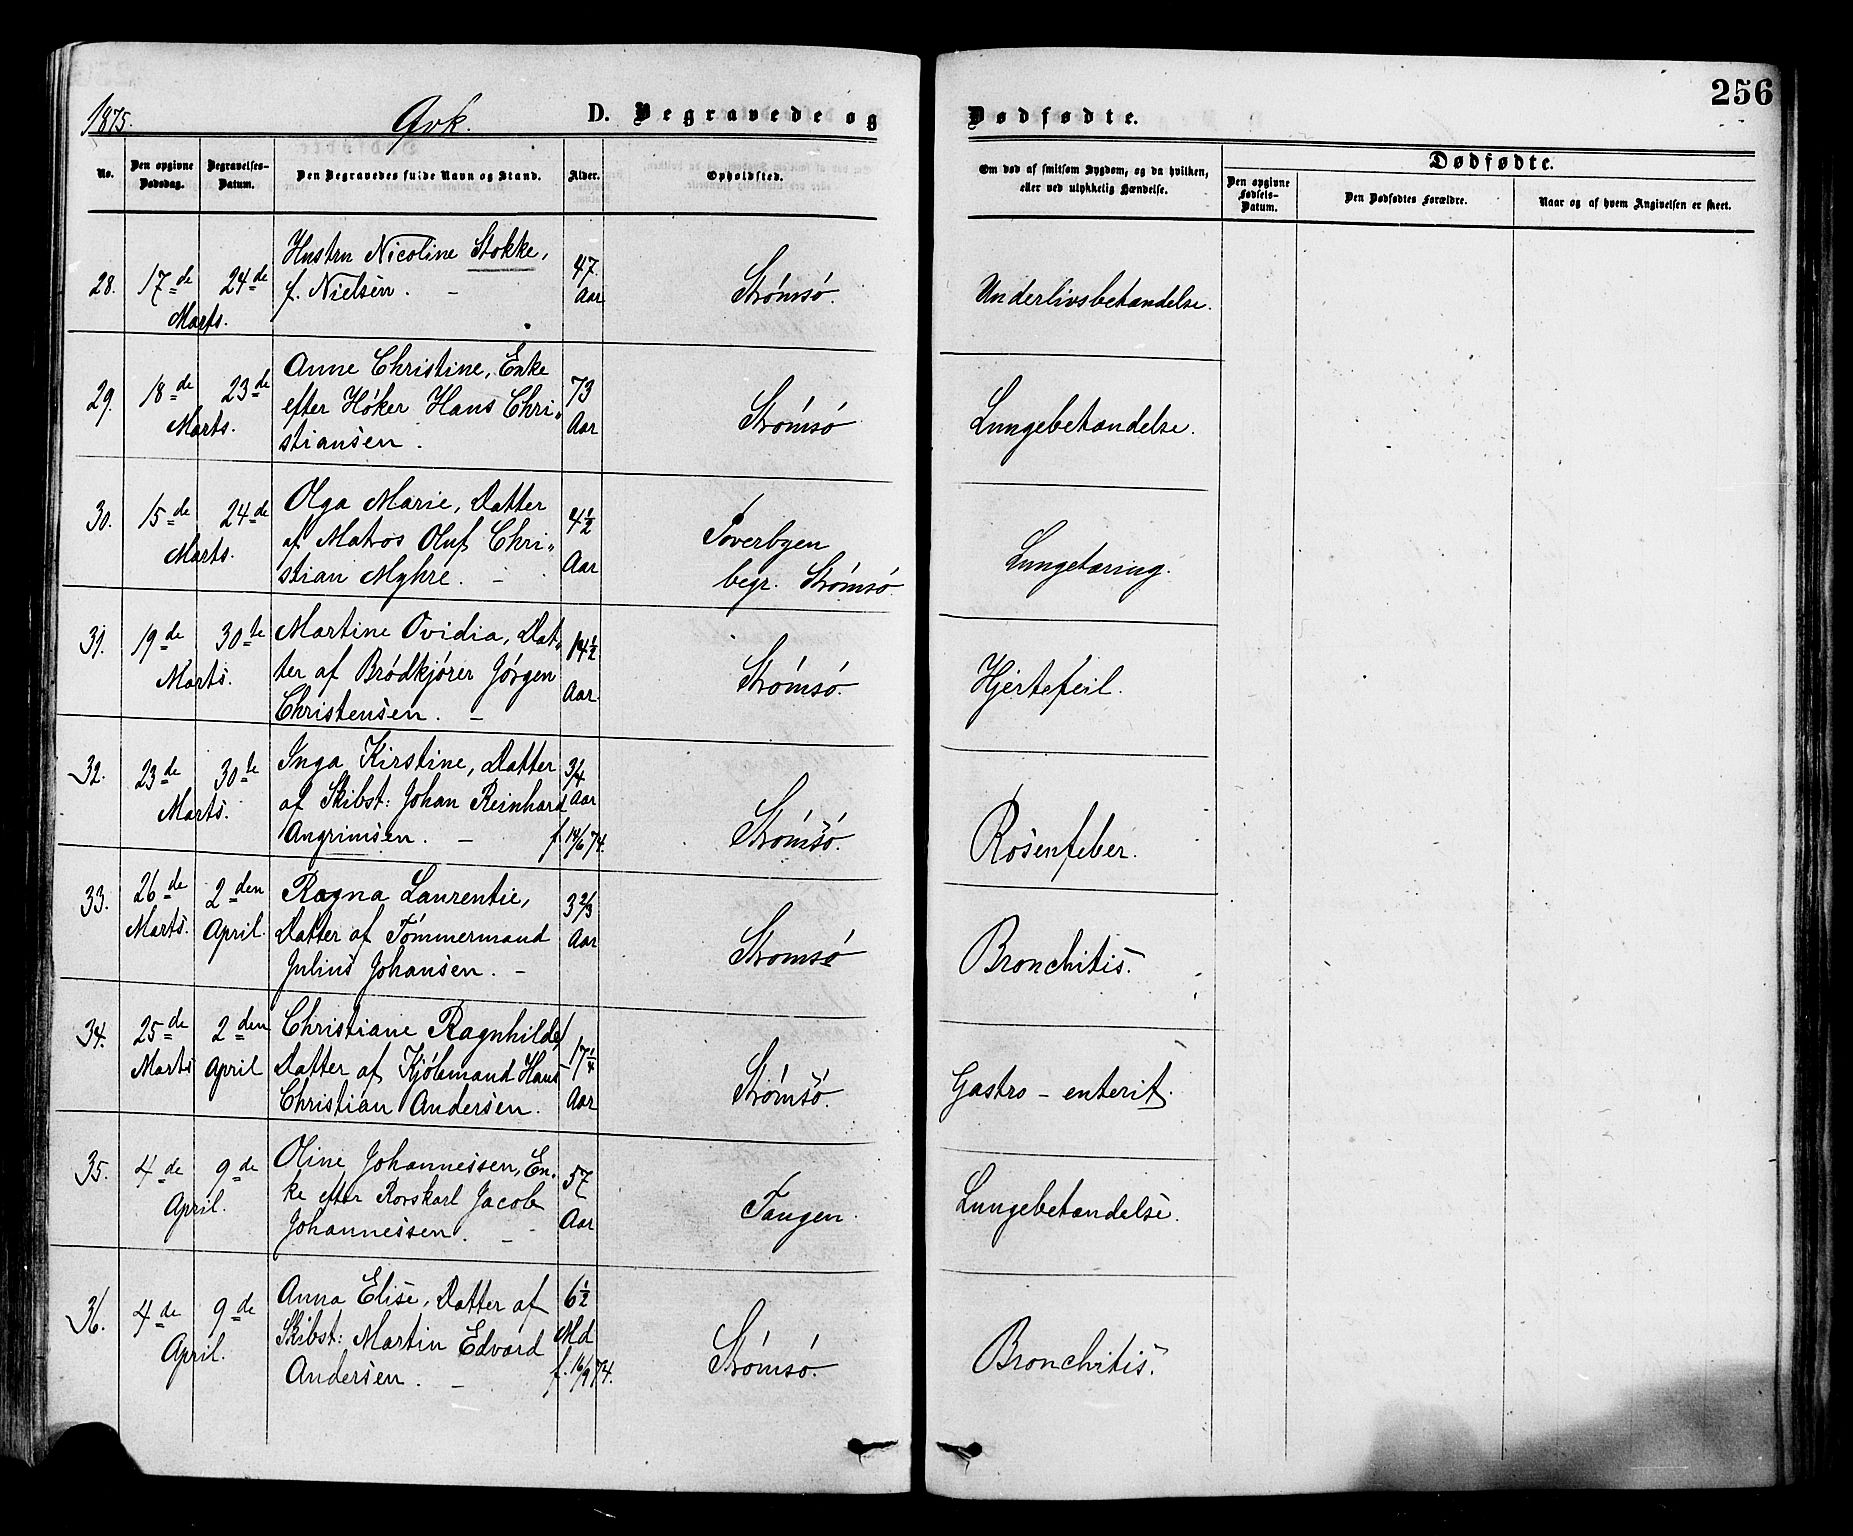 256
1875. Qvk. D. Begravede og Dødfødte.
No. Den opgivne Dødsdag. Begravelses-Datum. Den Begravedes fulde Navn og Stand. Alder. Opholdssted. Om død af smitsom Sygdom, og da hvilken, eller ved ulykkelig Hændelse. Dødfødte. Den opgivne Fødsels-Datum. Den Dødfødtes Forældre. Naar og af hvem Angivelsen er skeet.
28. 17de 24de Marts. Hustru Nicoline Stokke, f. Nielsen. 47 Aar Strømsø. Underlivsbetændelse.
29. 18de 23de Marts. Anne Christine, Enke
efter Høker Hans Chri-
stiansen. 73 Aar Strømsø Lungebetændelse.
30. 15de 24de Marts. Olga Marie, Datter
af Matros Oluf Chri-
stian Myhre. 4½ Aar Toverbyen
begr. Strømsø. Lungetæring.
31. 19de 30te Marts. Martine Ovidia, Dat-
ter af Brødkjører Jørgen
Christensen. 14½ Aar. Strømsø. Hjertefeil.
32. 23de 30te Marts. Inga Kirstine, Datter
af Skibst: Johan Reinhard
Angrimsen. 3/4 Aar f. 14/6 74. Strømsø. Rosenfeber.
33. 26de Marts. 2den April. Ragna Laurentie,
Datter af Tømmermand
Julius Johansen. 3 2/3 Aar Strømsø Bronchitis.
34. 25de Marts 2den April Christiane Ragnhilde,
Datter af Kjøbmand Hans
Christian Andersen. 17¼ Aar Strømsø. Gastro-enterit.
35. 4de 9de April. Oline Johannessen, En-
ke efter Rorskarl Jacob
Johannessen. 57 Aar Tangen. Lungebetændelse.
36. 4de 9de April. Anna Elise, Datter af
Skibst: Martin Edvard
Andersen. 6½ Md f. 16/9 74. Strømsø. Bronchitis.